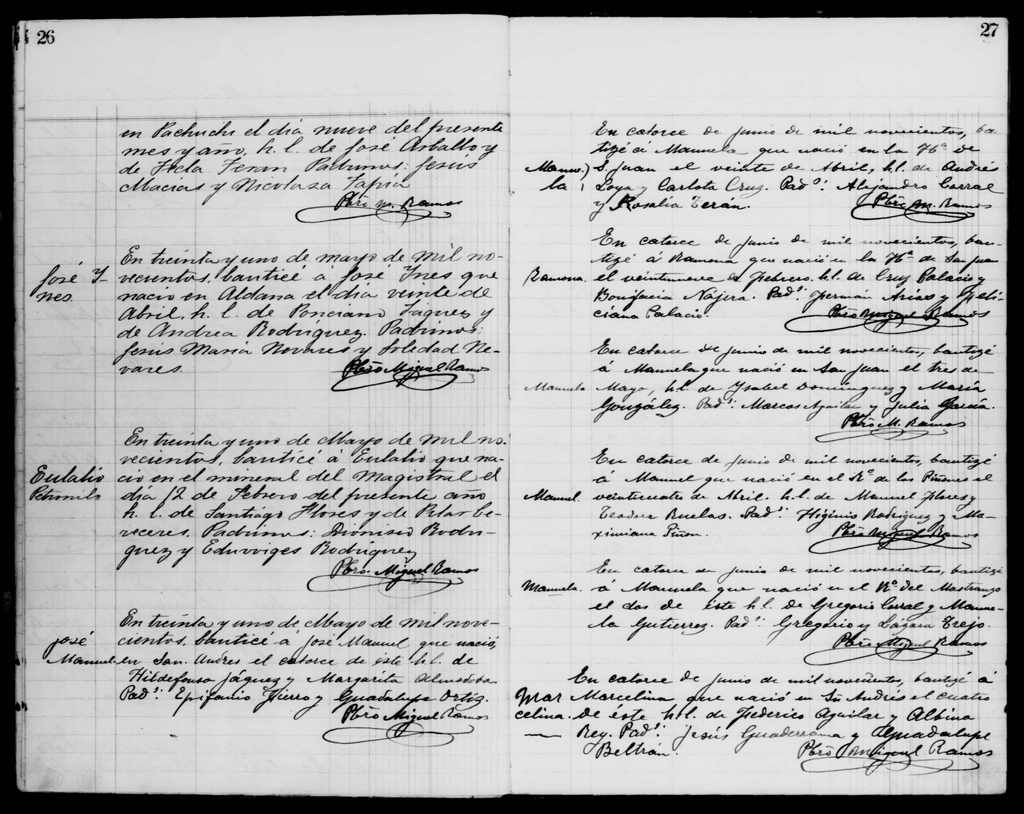 26
en el día nueve del presente
mes y año, h. l. de José y
de Tecla Teran Padrinos: Jesús
Macias y Nicolasa Tapia
Pbro. M. Ramos
José Y-
nes.
En treinta y uno de mayo de mil no-
vecientos, bauticé á José Ynes que
nacio en Aldana el día veinte de
Abril, h. l. de Ponciano Jaquez y
de Andrea Rodriguez. Padrinos:
Jesus Maria Nevares y Soledad Ne-
vares.
Pbro Miguel Ramos
Eulalio
En treinta y uno de Mayo de mil no-
vecientos, bauticé á Eulalio que na-
cio en el mineral del Magistral el
día 12 de Febrero del presente año
h. l. de Santiago Flores y de Pilar Ce-
niceros. Padrinos: Dionisio Rodri-
guez y Eduviges Rodriguez
Pbro. Miguel Ramos
José
Manuel
En treinta y uno de Mayo de mil nove-
cientos, bauticé á José Manuel que nació
en San Andres el catorce de éste h.l. de
Hildefonso Jáquez y Margarita
Pad.s: Epifanio Fierro y Guadalupe Ortiz.
Pbro Miguel Ramos
27
Manue-
la
En catorce de junio de mil novecientos, ba-
tizé á Manuela que nació en la Hda. de
S. Juan el veinte de Abril, h.l. de Andrés
Loya y Carlota Cruz. Pad.s: Alejandro Corral
y Rosalía Terán.
Pbro M. Ramos
Ramona
En catorce de junio de mil novecientos, bau-
tizé á Ramona que nació en la Hda. de San Juan
el veintinueve de Febrero h.l. de Cruz Palacio y
Bonifacia Nájera. Pad.s: Germán Arias y Feli-
ciana Palacio.
Pbro Miguel Ramos
Manuela
En catorce de junio de mil novecientos, bautizé
á Manuela que nació en San Juan el tres de
Mayo, h.l. de Ysabel Dominguez y María
González. Pad.s: Marcos Aguilar y Julia García.
Pbro M. Ramos
Manuel
En catorce de junio de mil novecientos, bautizé
á Manuel que nació en el Ro. de los Pinos el
veinticuatro de Abril. h.l. de Manuel Flores y
Teodora Ruelas. Pad.s: Higinio Rodriguez y Ma-
ximiana
Pbro Miguel Ramos
Manuela
En catorce de junio de mil novecientos, bautizé
á Manuela que nació en el Ro. del Mastranzo
el dos de éste h.l. de Gregorio Corral y Manue-
la Gutierrez. Pad.s: Gregorio y Lázara Trejo.
Pbro Miguel Ramos
Mar
celina.
En catorce de junio de mil novecientos, bautizé á
Marcelina que nació en Sn Andrés el cuatro
de éste h.l. de Federico Aguilar y Albina
Rey. Pad.s: Jesús Guaderrama y Guadalupe
Beltrán.
Pbro Miguel Ramos